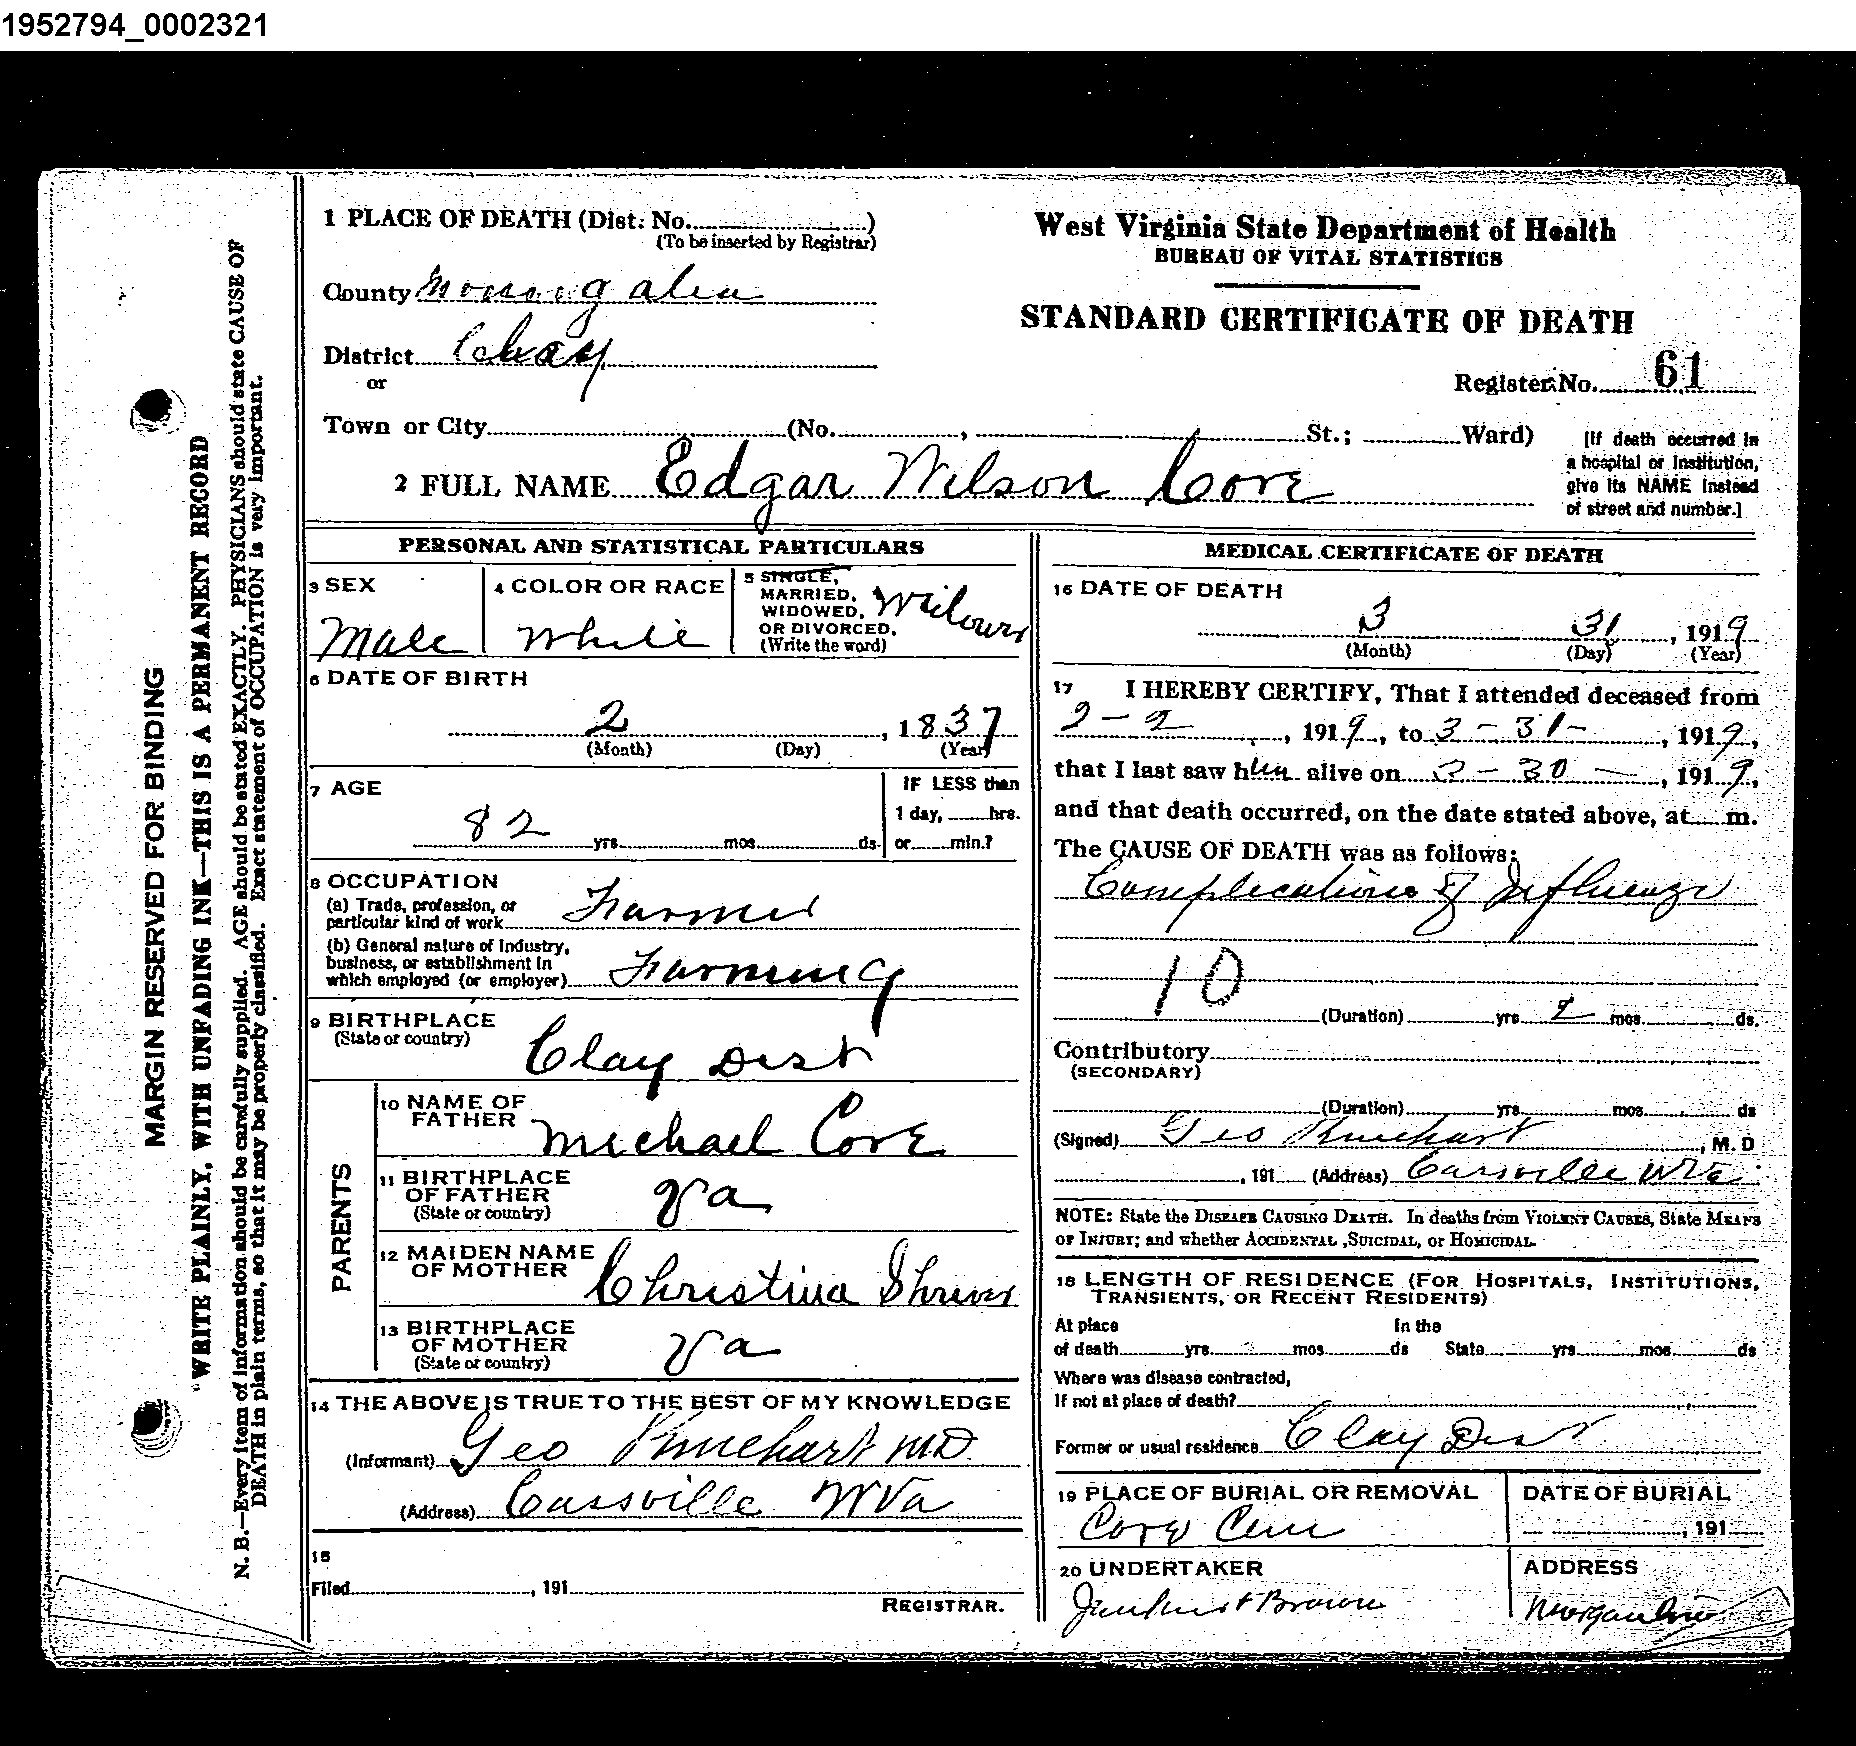 1952794_0002321
1 PLACE OF DEATH (Dist. No. )
(To be inserted by Registrar)
County Monongalia
District Clay
or
Town or City (No. , St.; Ward)
2 FULL NAME Edgar Wilson Core
West Virginia State Department of Health
BUREAU OF VITAL STATISTICS
STANDARD CERTIFICATE OF DEATH
Register No. 61
[If death occurred in
a hospital or institution,
give its NAME instead
of street and number.]
MARGIN RESERVED FOR BINDING
WRITE PLAINLY, WITH UNFADING INK—THIS IS A PERMANENT RECORD
N. B.—Every item of information should be carefully supplied. AGE should be stated EXACTLY. PHYSICIANS should state CAUSE OF
DEATH in plain terms, so that it may be properly classified. Exact statement of OCCUPATION is very important.
PERSONAL AND STATISTICAL PARTICULARS
3 SEX
Male
4 COLOR OR RACE
White
5 SINGLE,
MARRIED,
WIDOWED,
OR DIVORCED.
(Write the word)
Widower
6 DATE OF BIRTH
2 , 1837
(Month) (Day) (Year)
7 AGE
82 yrs. mos. ds.
IF LESS than
1 day, hrs.
or min.?
8 OCCUPATION
(a) Trade, profession, or
particular kind of work Farmer
(b) General nature of Industry,
business, or establishment in
which employed (or employer) Farming
9 BIRTHPLACE
(State or country)
Clay Dist
PARENTS
10 NAME OF
FATHER
Michael Core
11 BIRTHPLACE
OF FATHER
(State or country)
Va
12 MAIDEN NAME
OF MOTHER
Christina Shriver
13 BIRTHPLACE
OF MOTHER
(State or country)
Va
14 THE ABOVE IS TRUE TO THE BEST OF MY KNOWLEDGE
(Informant) Geo Rinehart MD
(Address) Cassville WVa
15
Filed , 191
REGISTRAR.
MEDICAL CERTIFICATE OF DEATH
16 DATE OF DEATH
3 31 , 1919
(Month) (Day) (Year)
17 I HEREBY CERTIFY, That I attended deceased from
2-2 , 1919, to 3-31- , 1919,
that I last saw him alive on 3-30- , 1919,
and that death occurred, on the date stated above, at m.
The CAUSE OF DEATH was as follows:
Complications of Influenza
10
(Duration) yrs. 2 mos. ds.
Contributory
(SECONDARY)
(Duration) yrs. mos. ds
(Signed) Geo Rinehart , M. D
, 191 (Address) Cassville WVa
NOTE: State the DISEASE CAUSING DEATH. In deaths from VIOLENT CAUSES, State MEANS
OF INJURY; and whether ACCIDENTAL, SUICIDAL, or HOMICIDAL.
18 LENGTH OF RESIDENCE (FOR HOSPITALS, INSTITUTIONS,
TRANSIENTS, OR RECENT RESIDENTS)
At place In the
of death yrs. mos. ds State yrs. mos. ds
Where was disease contracted,
If not at place of death?
Former or usual residence Clay Dist
19 PLACE OF BURIAL OR REMOVAL
Core Cem
DATE OF BURIAL
, 191
20 UNDERTAKER
Jenkins & Brown
ADDRESS
Morgantown